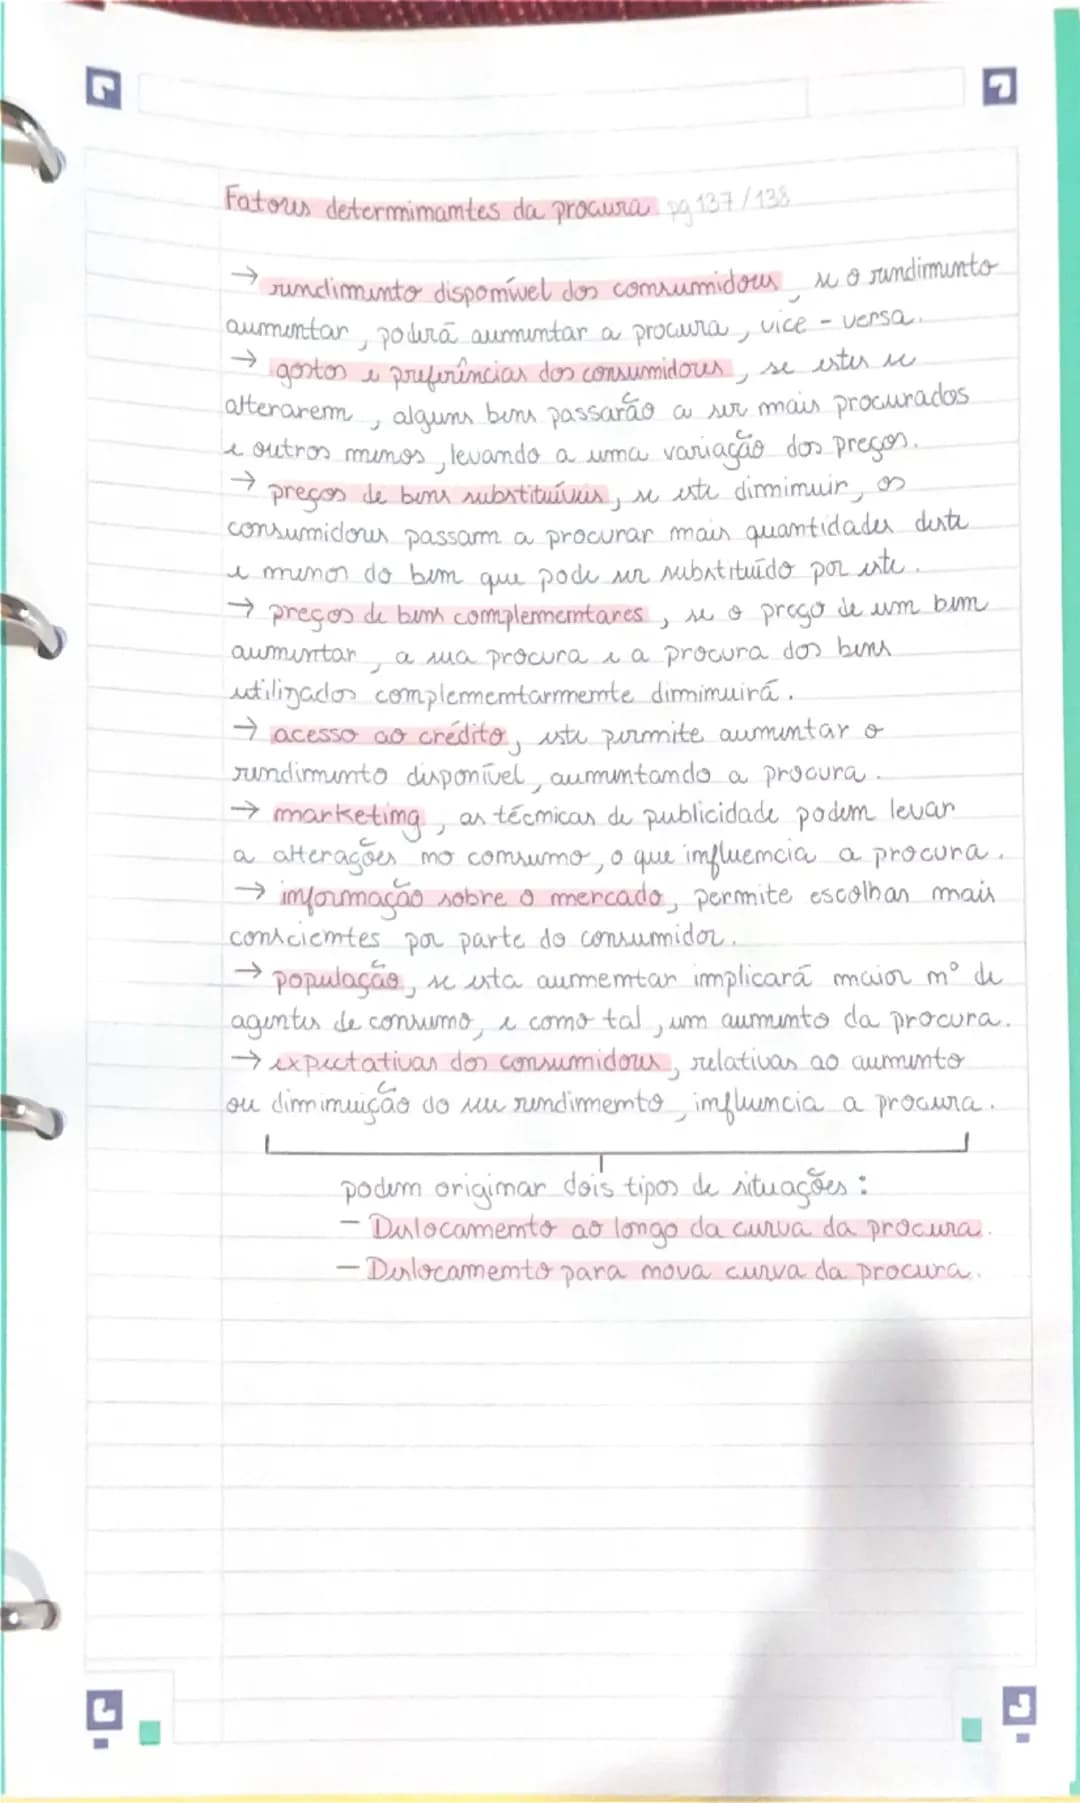 Fatores determinantes da procura pg 137/138
→ rendimento disponível dos consumidores, se o rendimento
aumentar, poderá aumentar a procura, vice-versa.
→ gostos e preferências dos consumidores, se estes se
alterarem, alguns bens passarão a ser mais procurados
e outros menos, levando a uma variação dos preços.
→ preços de bens substituíveis, se este diminuir, os
consumidores passam a procurar mais quantidades deste
e menos do bem que pode ser substituído por este.
→ preços de bens complementares, se o preço de um bem
aumentar, a sua procura e a procura dos bens
utilizados complementarmente diminuirá.
→ acesso ao crédito, este permite aumentar o
rendimento disponível, aumentando a procura.
→ marketing, as técnicas de publicidade podem levar
a alterações no consumo, o que influencia a procura.
→ informação sobre o mercado, permite escolhas mais
conscientes por parte do consumidor.
→ população, se esta aumentar implicará maior nº de
agentes de consumo, e como tal, um aumento da procura.
→ expectativas dos consumidores, relativas ao aumento
ou diminuição do seu rendimento, influencia a procura.
podem originar dois tipos de situações:
- Deslocamento ao longo da curva da procura.
- Deslocamento para nova curva da procura.